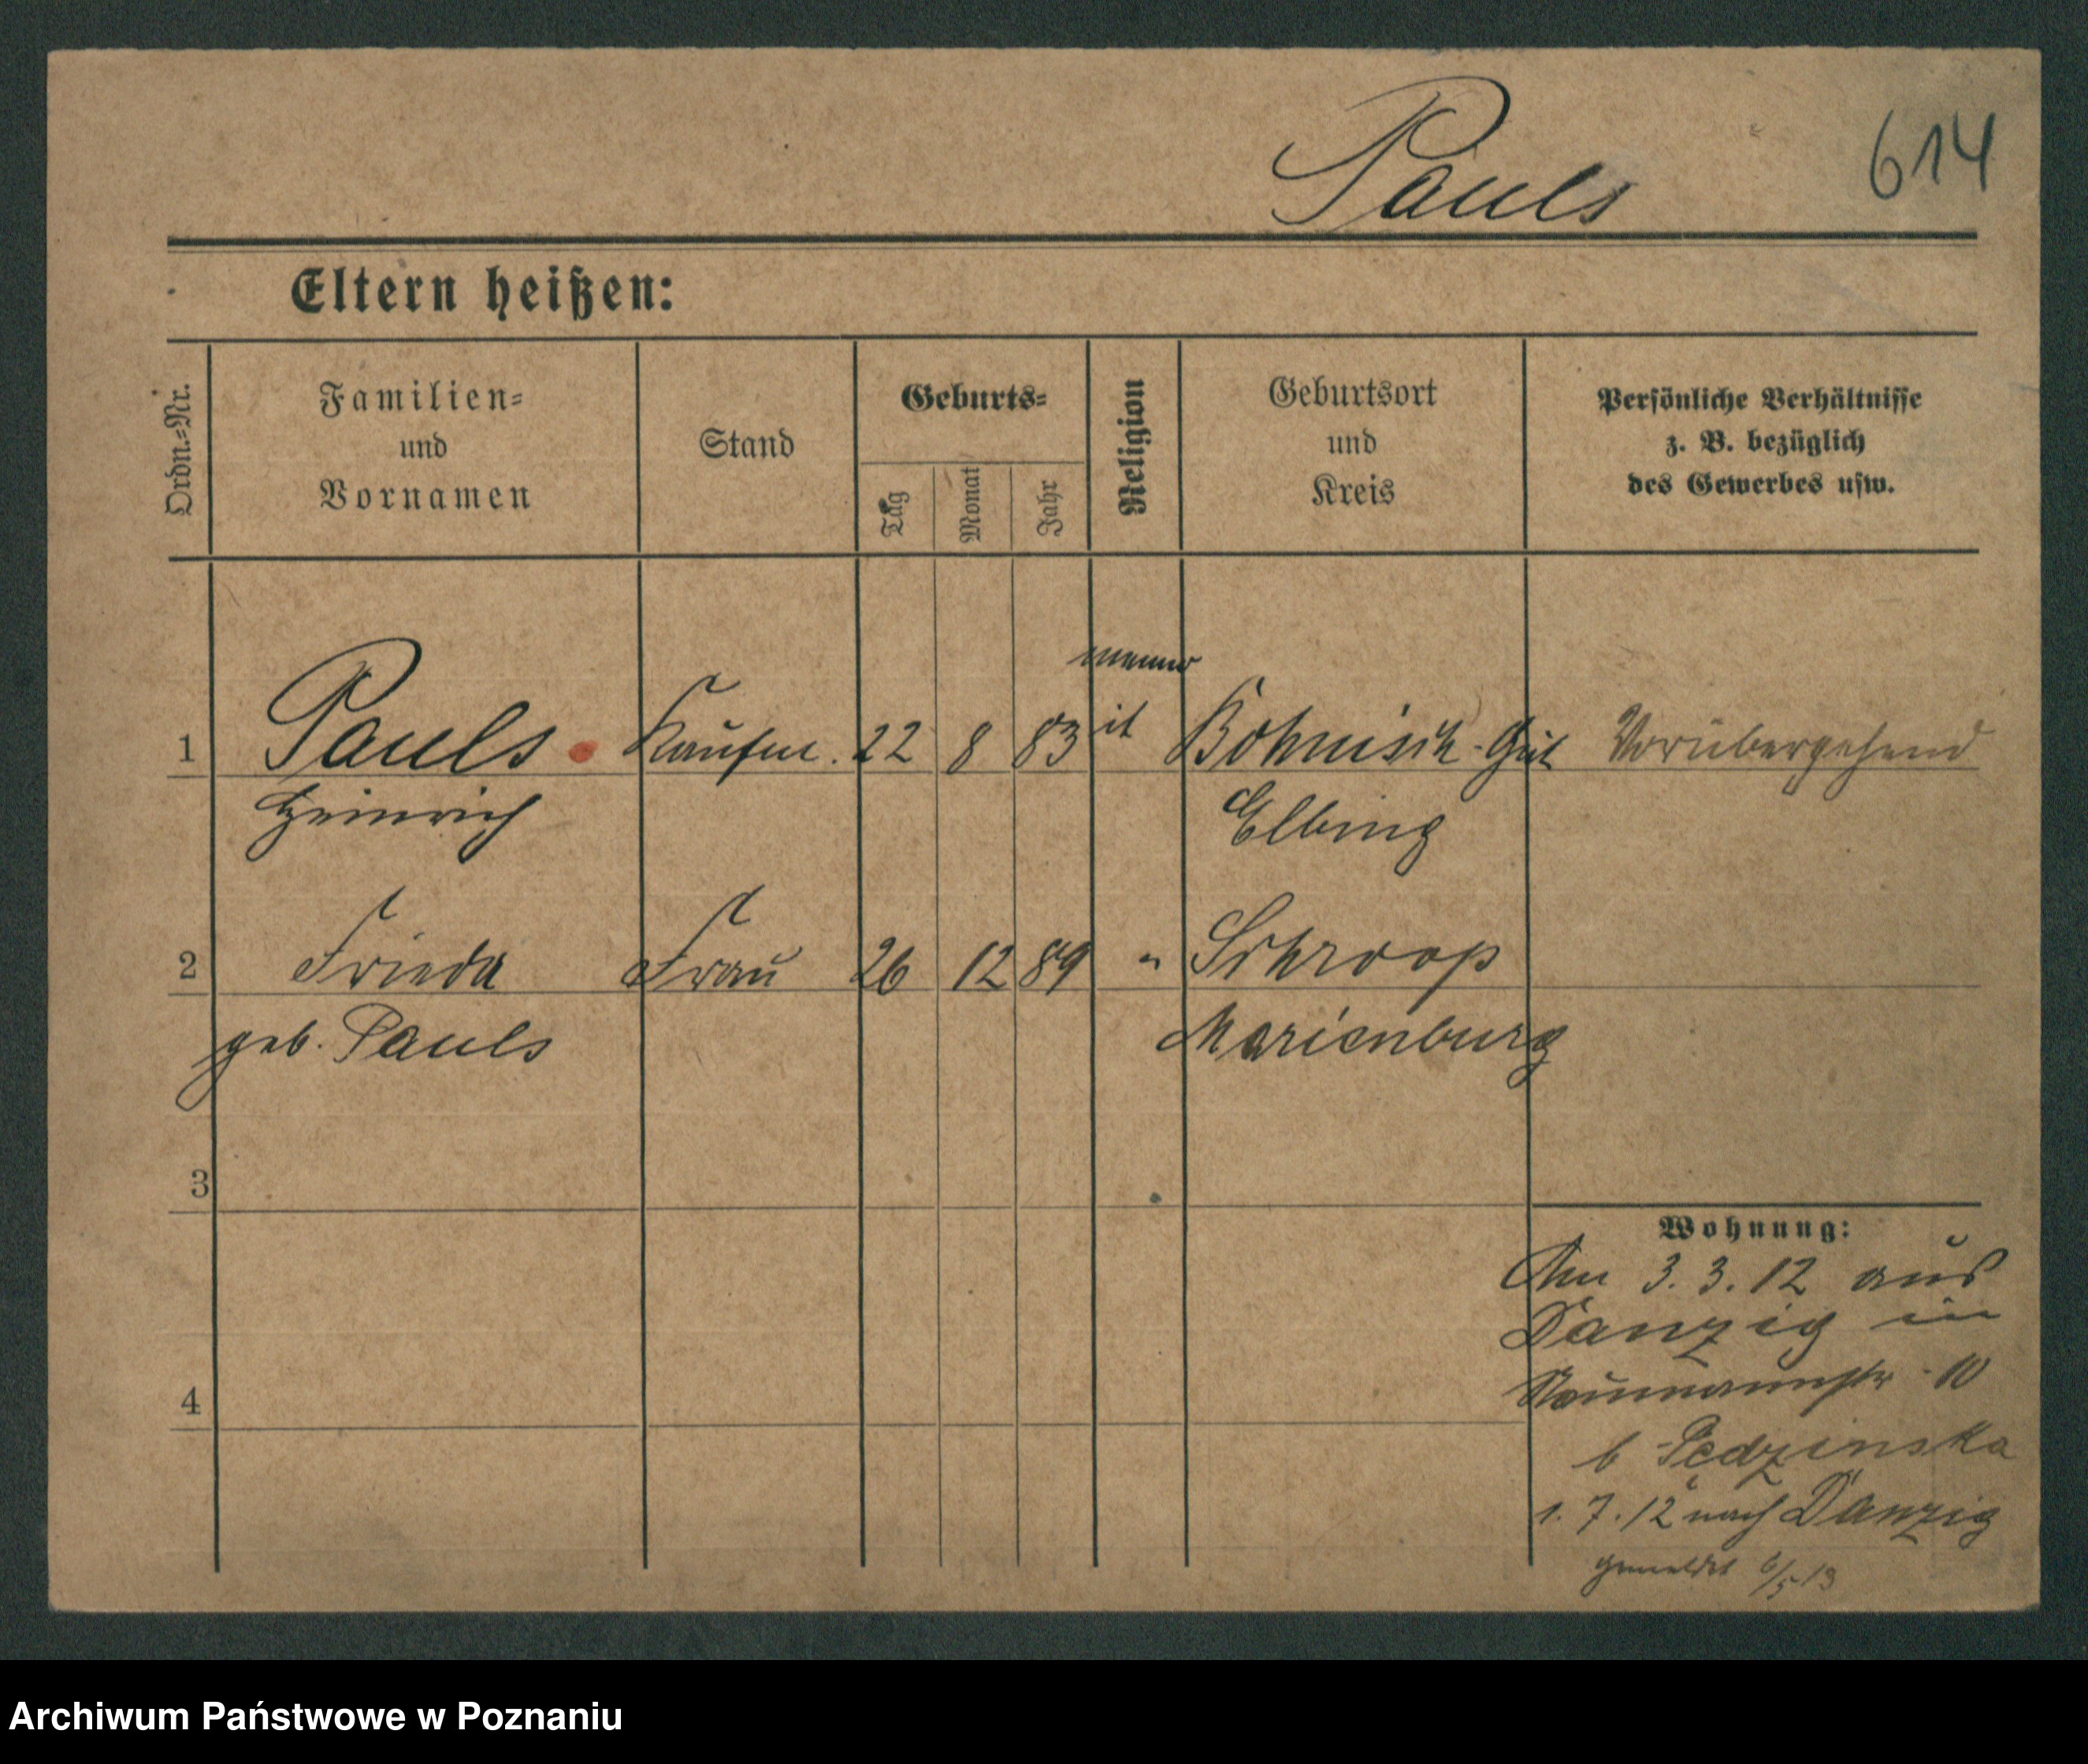 Pauls
614
Eltern heißen:
Ordn.=Nr.
Familien=
und
Vornamen
Stand
Geburts=
Tag
Monat
Jahr
Religion
Geburtsort
und
Kreis
Persönliche Verhältnisse
z. B. bezüglich
des Gewerbes usw.
menno
1 Pauls Kaufm. 22 8 83 it Bohnisch-Gut Vorübergehend
Heinrich Elbing
2 Frieda Frau 26 12 89 " Schroop
geb. Pauls Marienburg
3
Wohnung:
Am 3.3.12 aus
Danzig in
Naumannstr. 10
4
b Pędzinska
1.7.12 nach Danzig
gemeldet 6/5 13
Archiwum Państwowe w Poznaniu